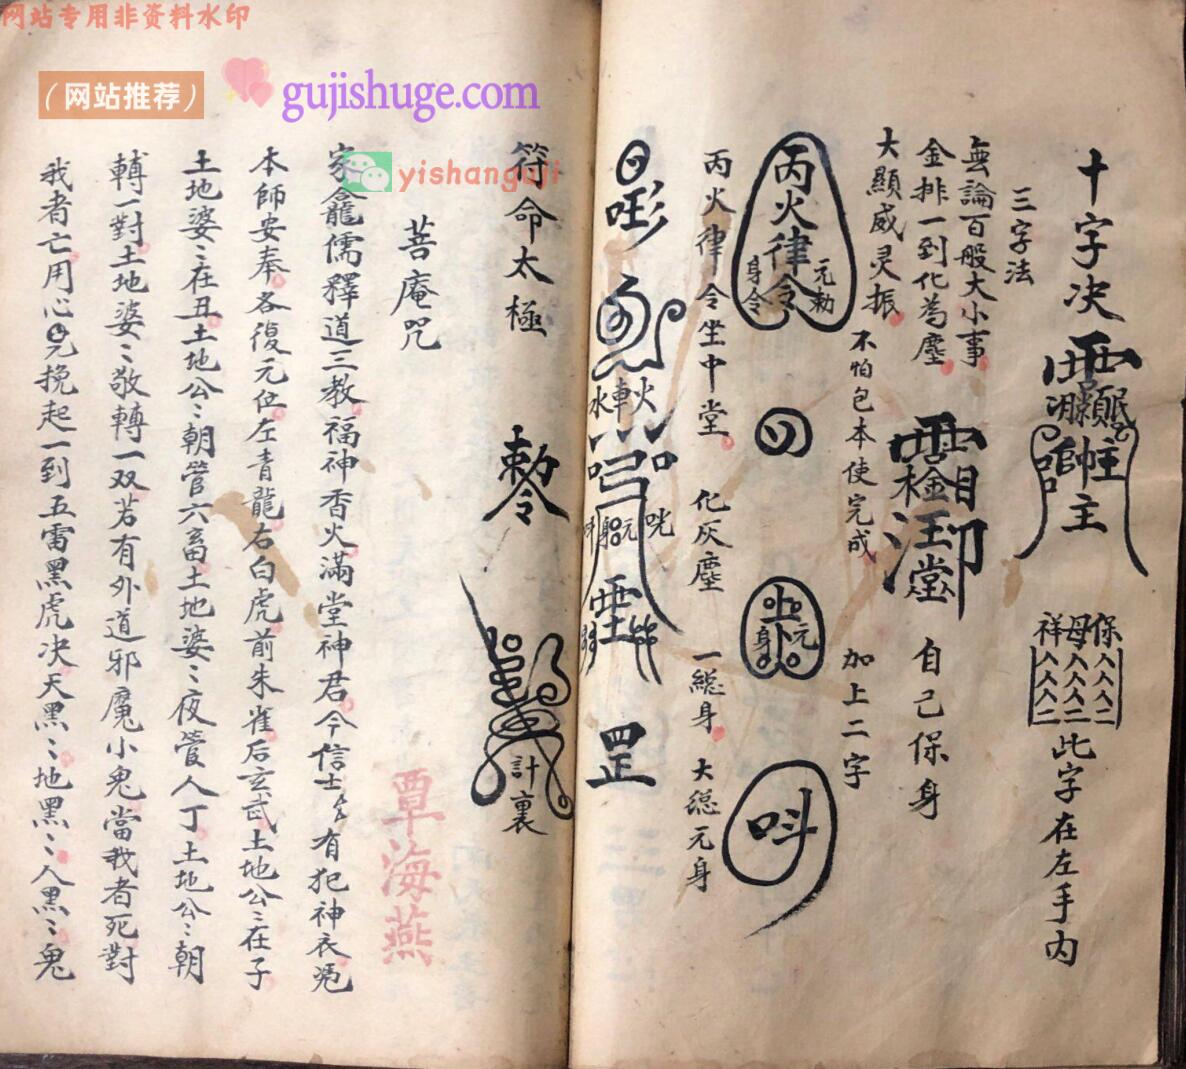 网站专用非资料水印
（网站推荐）
gujishuge.com
yishanguji
十字决
帥主
主
保母祥
此字在左手内
三字法
無論百般大小事
金排一到化為塵
自己保身
大顯威灵振
不怕包本使完成
加上二字
丙火律令
元勅
身令
元
身
呌
丙火律令坐中堂
化灰塵
一総身
大總元身
水車火
罡
符命太極
勅令
計裏
菩庵咒
覃海燕
家龕儒釋道三教福神香火滿堂神君今信士 有犯神衣凴
本師安奉各復元位左青龍右白虎前朱雀后玄武土地公〻在子
土地婆〻在丑土地公〻朝管六畜土地婆〻夜管人丁土地公〻朝
轉一對土地婆〻敬轉一双若有外道邪魔小鬼當我者死對
我者亡用心 挽起一到五雷黑虎决天黑〻地黑〻人黑〻鬼